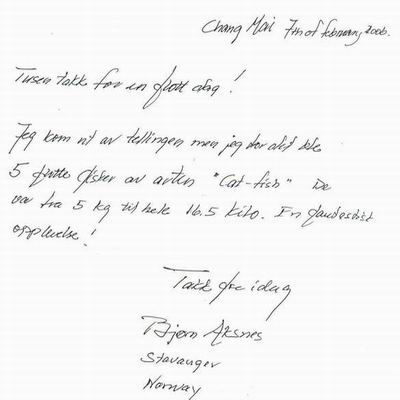 Chang Mai 7th of february 2006.
Tusen takk for en flott dag!
Jeg kom ut av tellingen men jeg tror det ble
5 flotte fisker av arten "Cat-fish" De
var fra 5 kg til hele 16.5 kilo. En fantastisk
opplevelse!
Takk for idag
Bjørn Aksnes
Stavanger
Norway